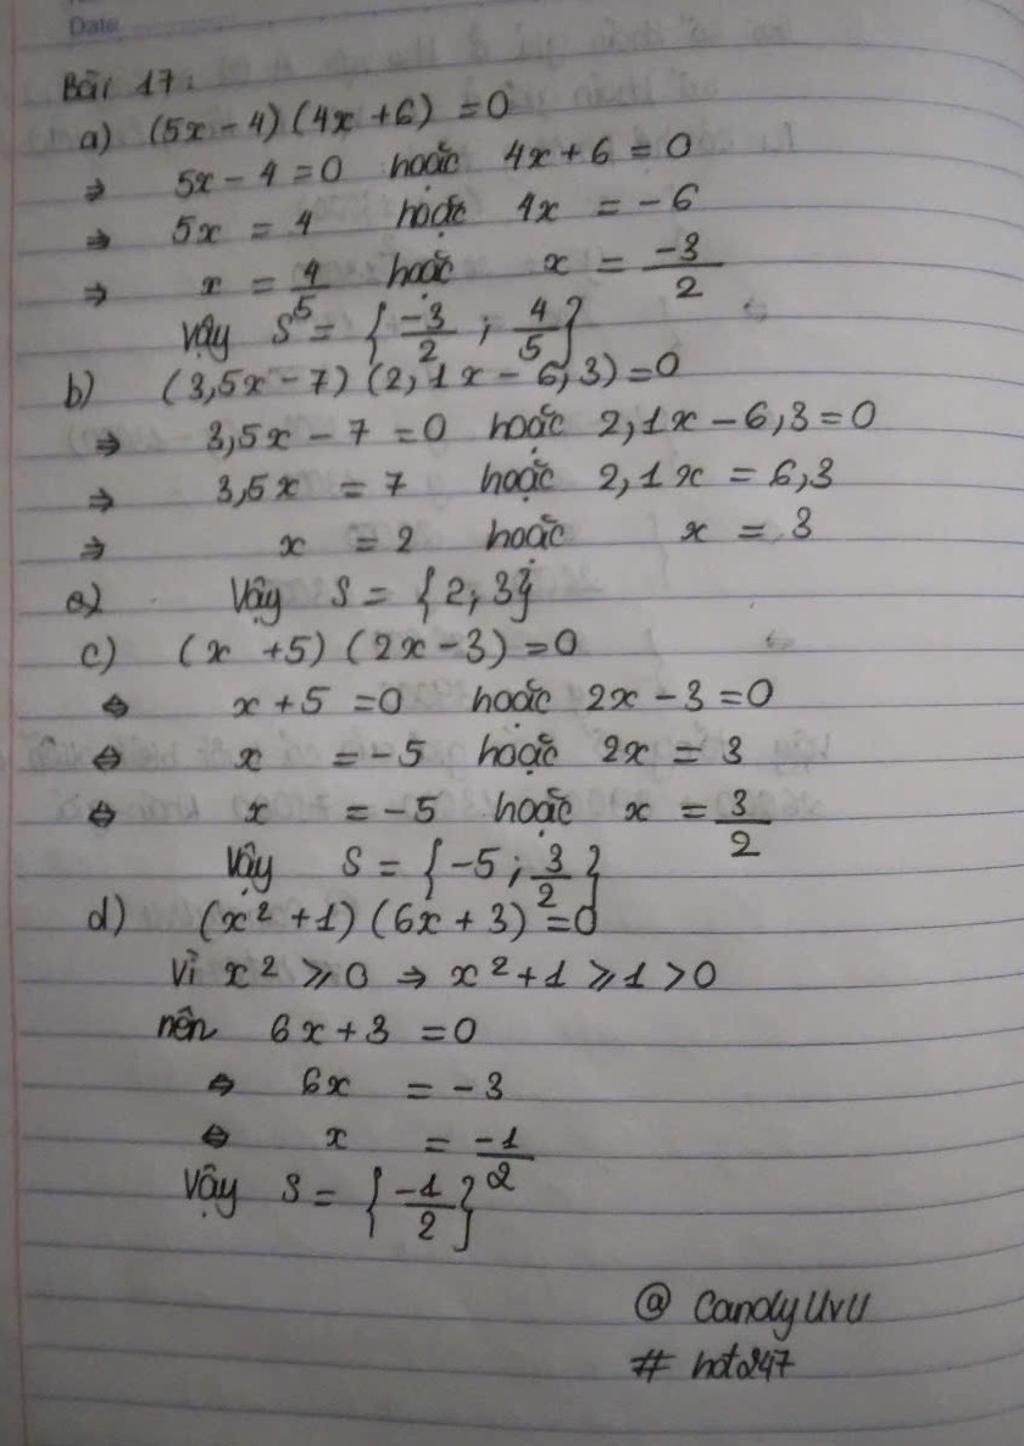 Date
Bài 17:
a) (5x - 4)(4x + 6) = 0
⇒ 5x - 4 = 0 hoặc 4x + 6 = 0
⇒ 5x = 4 hoặc 4x = -6
⇒ x = 4/5 hoặc x = -3/2
Vậy S = { -3/2 ; 4/5 }
b) (3,5x - 7)(2,1x - 6,3) = 0
⇒ 3,5x - 7 = 0 hoặc 2,1x - 6,3 = 0
⇒ 3,5x = 7 hoặc 2,1x = 6,3
⇒ x = 2 hoặc x = 3
Vậy S = {2; 3}
c) (x + 5)(2x - 3) = 0
⇔ x + 5 = 0 hoặc 2x - 3 = 0
⇔ x = -5 hoặc 2x = 3
⇔ x = -5 hoặc x = 3/2
Vậy S = { -5 ; 3/2 }
d) (x² + 1)(6x + 3) = 0
Vì x² ⩾ 0 ⇒ x² + 1 ⩾ 1 > 0
nên 6x + 3 = 0
⇔ 6x = -3
⇔ x = -1/2
Vậy S = { -1/2 }
@ CandyUvU
# hot247